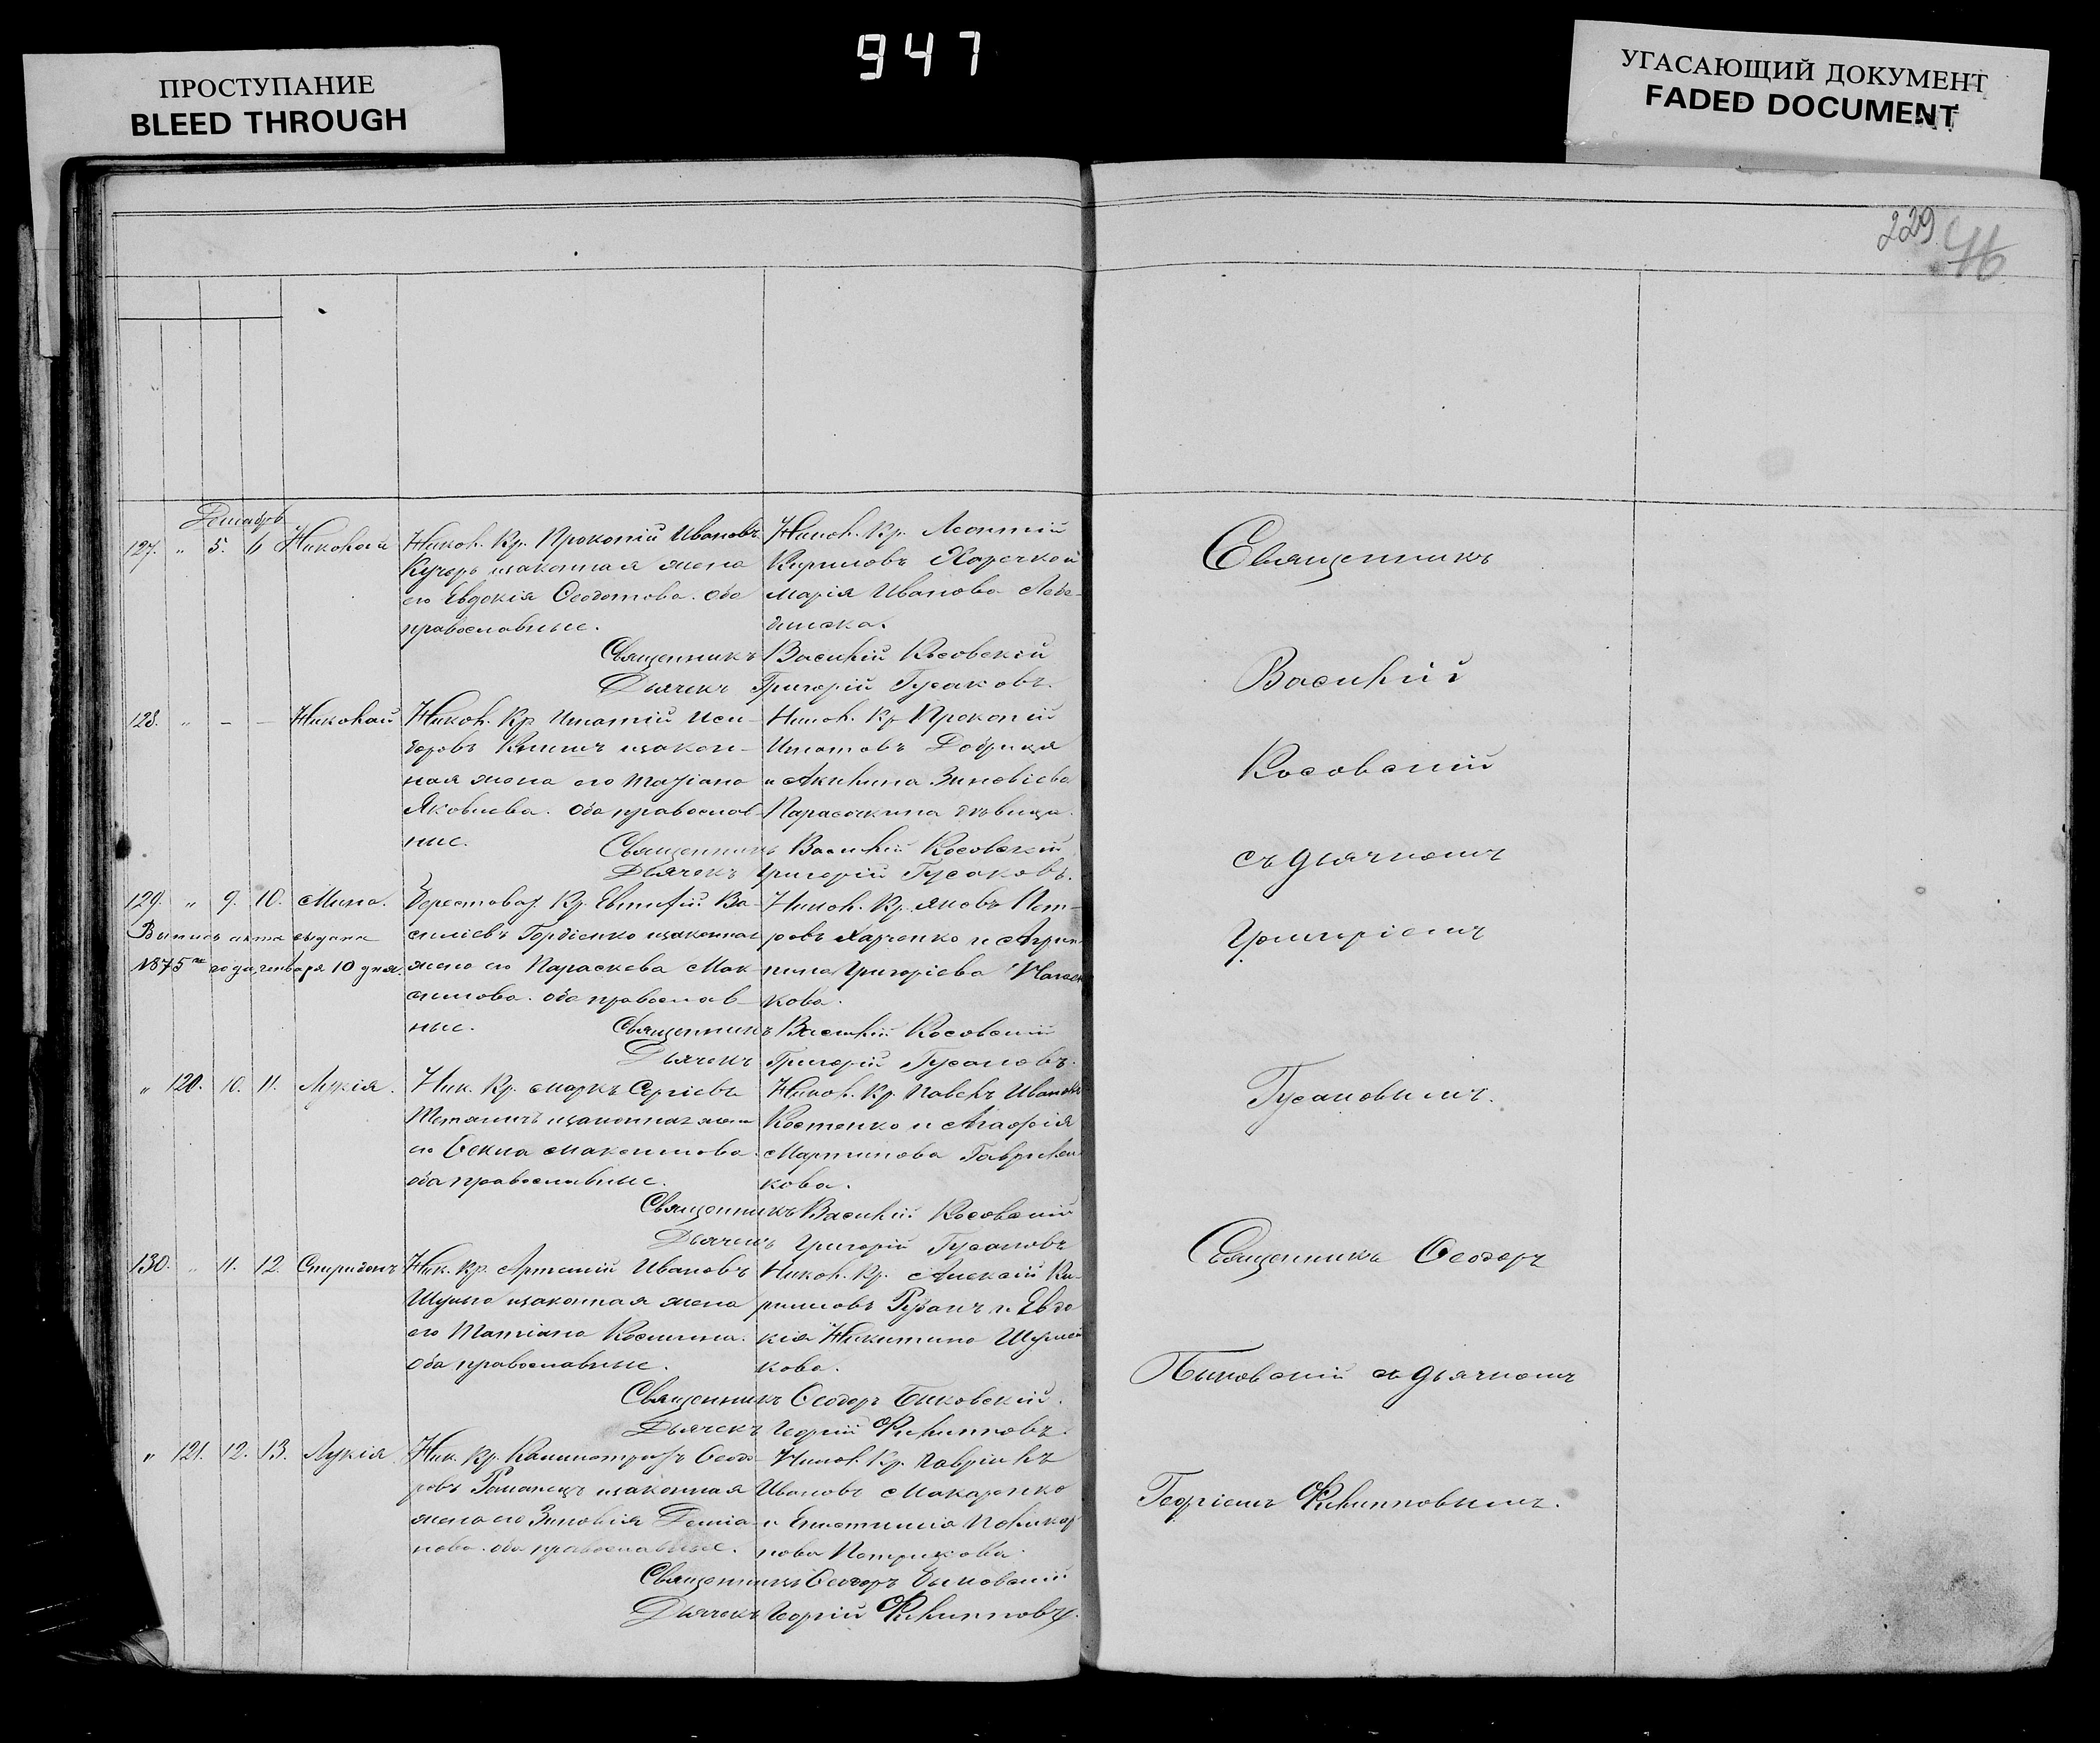 947
ПРОСТУПАНИЕ
BLEED THROUGH
УГАСАЮЩИЙ ДОКУМЕНТ
FADED DOCUMENT
229
46
Декабрь
127. " 5. 6 Николай
Никол. Кр. Прокопій Ивановъ
Кучеръ изаконная жена
его Евдокія Ѳеодотова. Оба
православные.
Никол. Кр. Леонтій
Кириловъ
Марія Иванова
Священникъ Василій Косовскій
Дьячекъ Григорій Гусаковъ.
128. " - - Николай
Никол. Кр Игнатій Иси-
доровъ изакон-
ная жена его Татіана
Яковлева. Оба православ-
ные.
Никол. Кр Прокопій
Игнатовъ Добрица
и Акилина Зиновіева
дѣвица.
Священникъ Василій Косовскій
Дьячекъ Григорій Гусаковъ.
129. " 9. 10. Мина.
Выпись акта выдана
1875 года января 10 дня.
Берестовал. Кр. Евтифій Ва-
силіевъ Гордіенко изаконная
жена его Параскева Мак-
симова. оба православ-
ные.
Никол. Кр. Яковъ Пет-
ровъ Харченко и
Григоріева
кова.
Священникъ Василій Косовскій
Дьячекъ Григорій Гусаковъ.
" 120. 10. 11. Лукія.
Ник. Кр. Маркъ Сергіевъ
изаконная жена
его Ѳекла Максимова
оба православные.
Никол. Кр. Павелъ Ивановъ
Костенко и Агафія
Мартинова Гаврилен-
кова.
Священникъ Василій Косовскій
Дьячекъ Григорій Гусаковъ
130. " 11. 12. Спиридонъ
Ник. Кр. Артемій Ивановъ
изаконная жена
его Татіана Космина.
Оба православные.
Никол. Кр. Алексій Ки-
риловъ и Евдо
кія Никитина
кова.
Священникъ Ѳеодоръ Быковскій.
Дьячекъ Георгій Филипповъ.
" 121. 12. 13. Лукія
Ник. Кр. Калистратъ Ѳеодо-
ровъ Романецъ изаконная
жена его Зиновія Деміа-
нова. оба православные.
Никол. Кр. Гавріилъ
Ивановъ Макаренко
и Епистимія Поликар
пова Петрикова.
Священникъ Ѳеодоръ Быковскій
Дьячекъ Георгій Филипповъ.
Священникъ
Василій
Косовскій
съ дьячкомъ
Григоріемъ
Гусаковымъ.
Священникъ Ѳеодоръ
Быковскій съ дьячкомъ
Георгіемъ Филипповымъ.